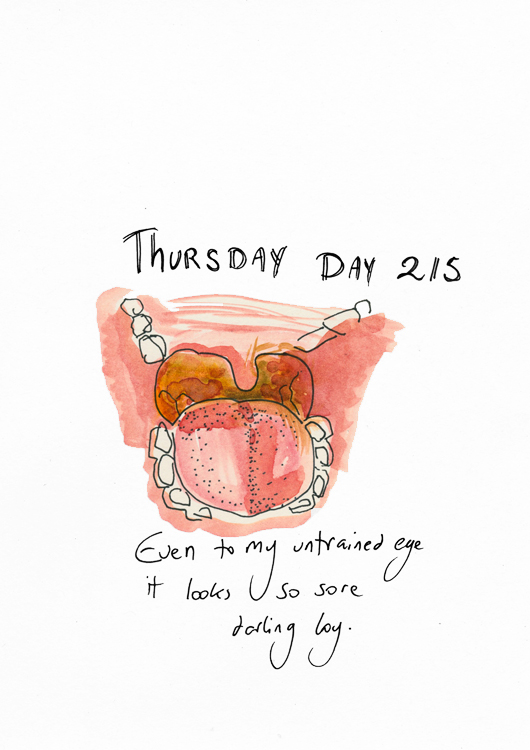 THURSDAY DAY 215
Even to my untrained eye
it looks so sore
darling boy.